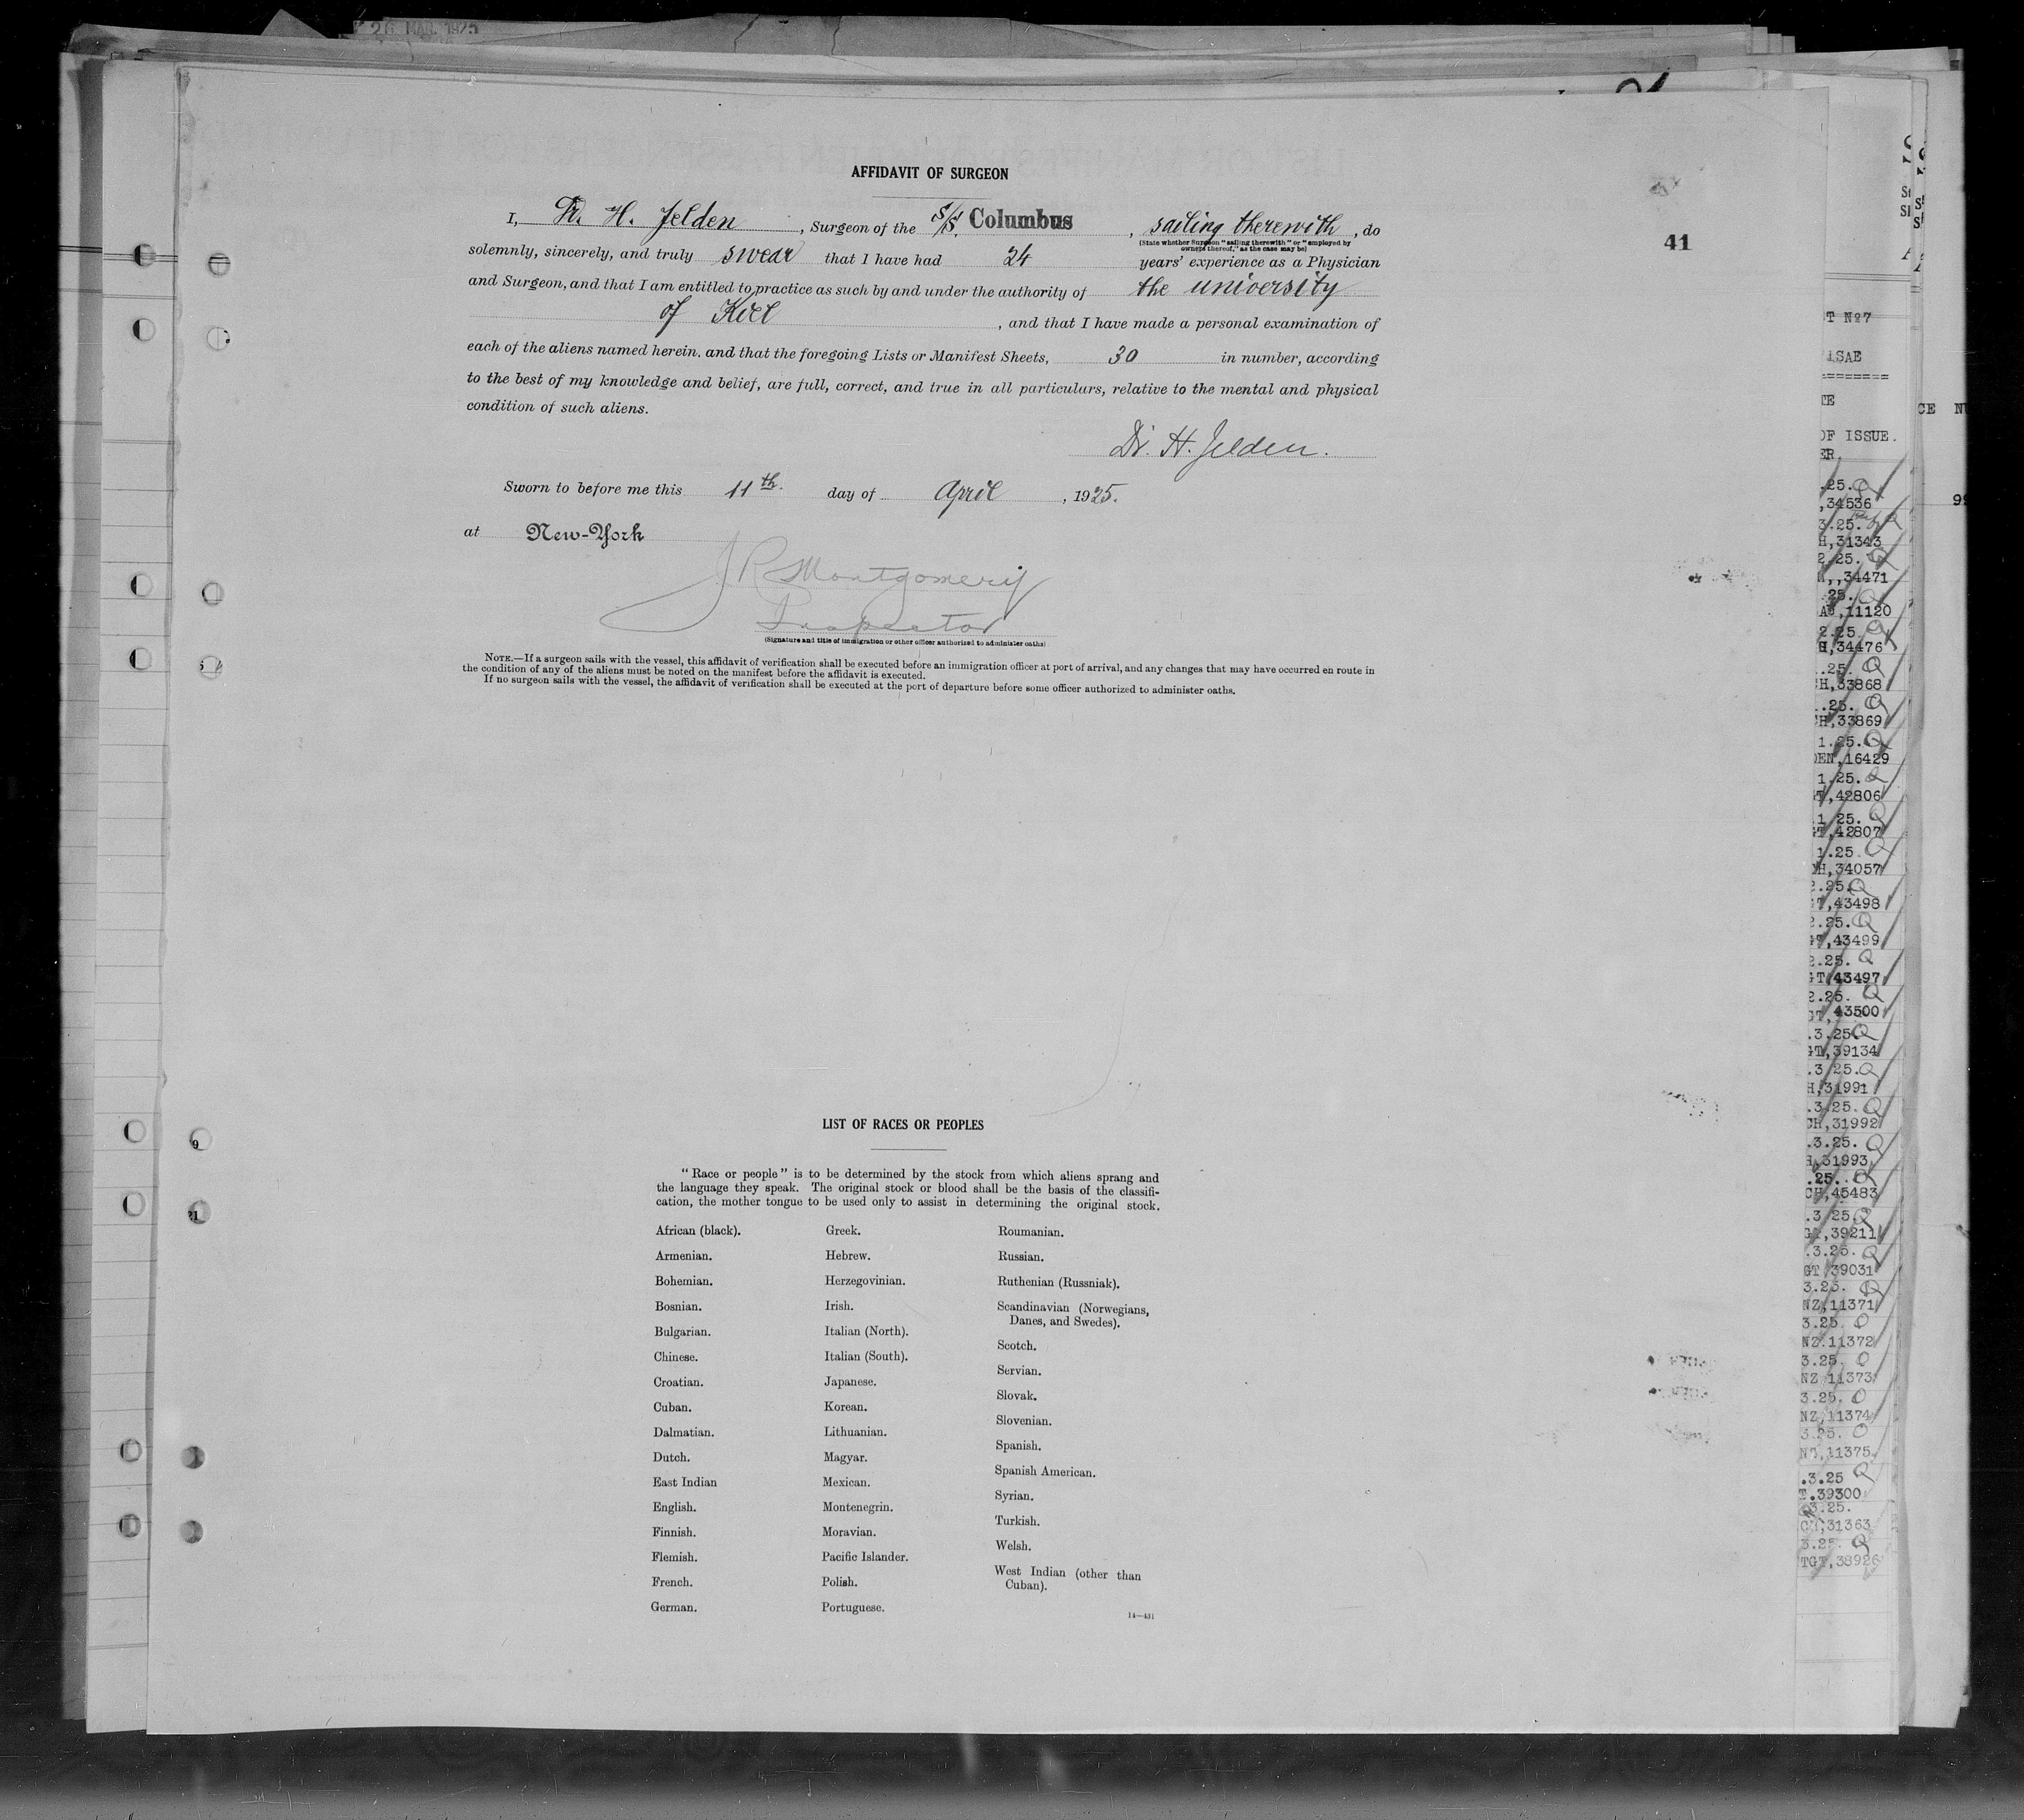 26 MAR. 1925
AFFIDAVIT OF SURGEON
I, Dr. H. Jelden, Surgeon of the S/S. Columbus, sailing therewith, do
(State whether Surgeon "sailing therewith" or "employed by
owners thereof," as the case may be)
41
solemnly, sincerely, and truly swear that I have had 24 years' experience as a Physician
and Surgeon, and that I am entitled to practice as such by and under the authority of the university
of Kiel, and that I have made a personal examination of
each of the aliens named herein. and that the foregoing Lists or Manifest Sheets, 30 in number, according
to the best of my knowledge and belief, are full, correct, and true in all particulars, relative to the mental and physical
condition of such aliens.
Dr. H. Jelden.
Sworn to before me this 11th. day of April, 1925.
at New-York
J R Montgomery
Inspector
(Signature and title of immigration or other officer authorized to administer oaths)
NOTE.—If a surgeon sails with the vessel, this affidavit of verification shall be executed before an immigration officer at port of arrival, and any changes that may have occurred en route in
the condition of any of the aliens must be noted on the manifest before the affidavit is executed.
If no surgeon sails with the vessel, the affidavit of verification shall be executed at the port of departure before some officer authorized to administer oaths.
LIST OF RACES OR PEOPLES
"Race or people" is to be determined by the stock from which aliens sprang and
the language they speak. The original stock or blood shall be the basis of the classifi-
cation, the mother tongue to be used only to assist in determining the original stock.
African (black).
Armenian.
Bohemian.
Bosnian.
Bulgarian.
Chinese.
Croatian.
Cuban.
Dalmatian.
Dutch.
East Indian
English.
Finnish.
Flemish.
French.
German.
Greek.
Hebrew.
Herzegovinian.
Irish.
Italian (North).
Italian (South).
Japanese.
Korean.
Lithuanian.
Magyar.
Mexican.
Montenegrin.
Moravian.
Pacific Islander.
Polish.
Portuguese.
Roumanian.
Russian.
Ruthenian (Russniak).
Scandinavian (Norwegians,
Danes, and Swedes).
Scotch.
Servian.
Slovak.
Slovenian.
Spanish.
Spanish American.
Syrian.
Turkish.
Welsh.
West Indian (other than
Cuban).
14—431
T Nº7
ISAE
=======
TE
OF ISSUE.
ER
.25.
,34536
3.25.
H,31343
2.25.
,,34471
.25.
,11120
2.25.
H,34476
.25.
H,33868
.25.
H,33869
1.25.
DEN,16429
1.25.
T,42806
1.25.
GT,42807
1.25
H,34057
2.25.
T,43498
2.25.
GT,43499
2.25.
GT,43497
2.25.
GT,43500
.3.25
GT,39134
.3.25.
H,31991
.3.25.
CH,31992
.3.25.
H,31993
.25.
CH,45483
.3.25
GT,39211
.3.25.
GT,39031
3.25.
NZ,11371
3.25.
NZ.11372
3.25.
NZ 11373
3.25.
NZ,11374
3.25.
,11375
.3.25
T.39300
3.25.
CH,31363
3.25.
TGT,38926
CE NU
99